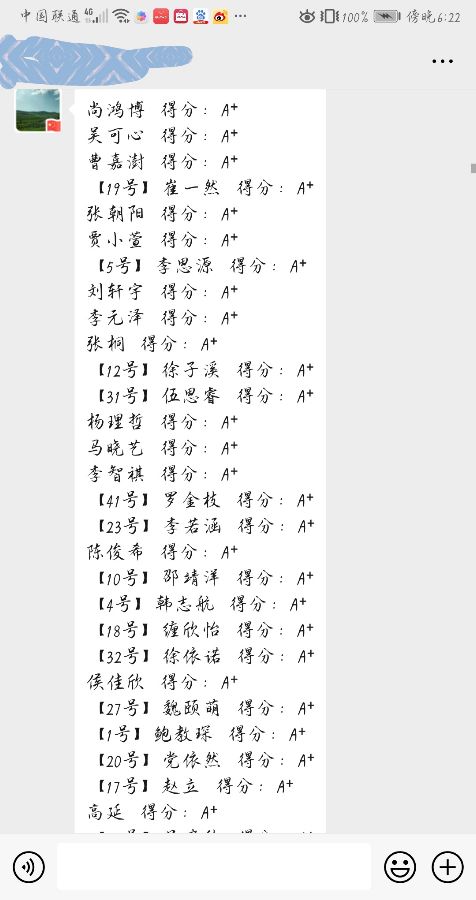 中国联通 4G 100% 傍晚6:22
尚鸿博 得分：A+
吴可心 得分：A+
曹嘉澍 得分：A+
【19号】崔一然 得分：A+
张朝阳 得分：A+
贾小萱 得分：A+
【5号】李思源 得分：A+
刘轩宇 得分：A+
李元泽 得分：A+
张桐 得分：A+
【12号】徐子溪 得分：A+
【31号】伍思睿 得分：A+
杨理哲 得分：A+
马晓艺 得分：A+
李智祺 得分：A+
【41号】罗金枝 得分：A+
【23号】李若涵 得分：A+
陈俊希 得分：A+
【10号】邵靖洋 得分：A+
【4号】韩志航 得分：A+
【18号】缠欣怡 得分：A+
【32号】徐依诺 得分：A+
侯佳欣 得分：A+
【27号】魏颐萌 得分：A+
【1号】鲍教琛 得分：A+
【20号】党依然 得分：A+
【17号】赵立 得分：A+
高延 得分：A+